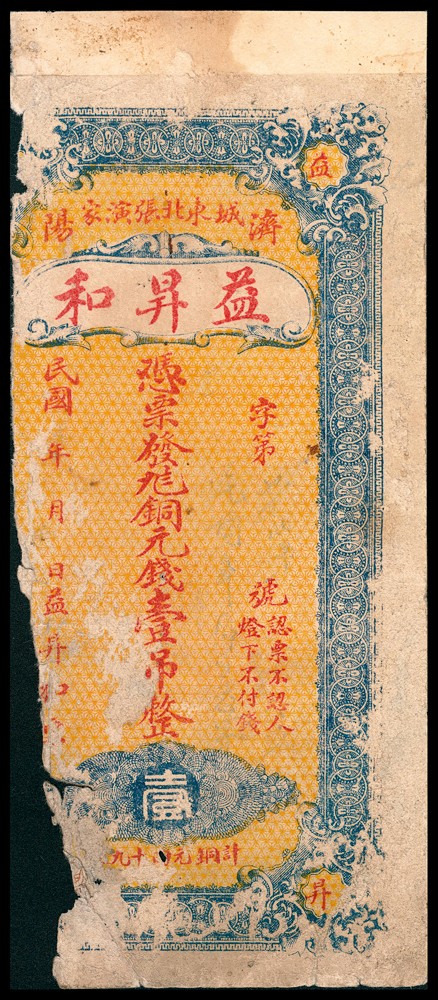 益
濟城東北張演家陽
益昇和
字第 號
認票不認人
燈下不付錢
憑票發兌銅元錢壹吊整
民國 年 月 日益昇和
壹
計銅元 十九
昇